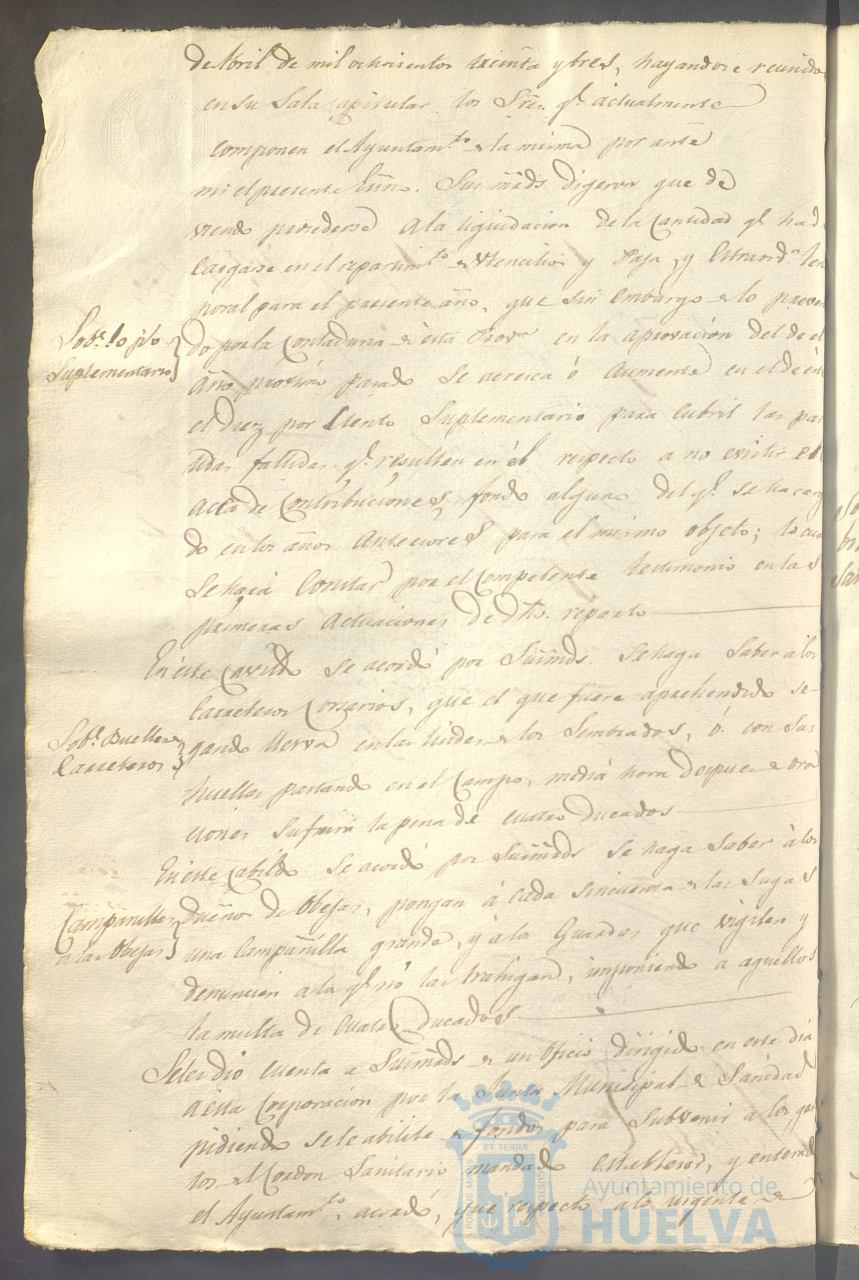 de Abril de mil ochocientos treinta y tres, hayandose reunido
en su Sala Capitular los Sres. qe. actualmente
componen el Ayuntamto. de la misma por ante
mi el presente Essno. Sus mrds digeron que de
viendo procederse a la liquidacion de la Cantidad qe. ha d
Cargarse en el repartimto. de Utencilios y Paja, y Estraorda. tem
poral para el presente año, que sin embargo de lo preven
do por la Contaduria de esta Prova. en la aprovacion del de el
Año proximo pasado se acresca ó aumente en el de
el diez por Ciento Suplementario para cubrir las par
tidas fallidas qe. resulten en el respecto a no existir
de Contribuciones, fondo alguno del qe. se ha
do en los años anteriores para el mismo objeto; lo cua
se hará constar por el Competente testimonio en las
primeras Actuaciones de dho. reparto
Sobe. lo pto
Suplementario
En este Cavildo se acordó por Sus mrds. se haga saber á los
Carreteros Corsarios, que el que fuere aprehendido se-
gando Yerva en las lindes de los Sembrados, ó con sus
Sobe. Buelles
Carreteros
huelles pastando en el Campo, media hora despues de ora
ciones sufrirá la pena de cuatro ducados
En este Cabildo se acordó por Sus mrds se haga saber á los
dueños de Obejas, pongan á cada sincuenta de las suyas
Campanillas
a las Obejas
una Campanilla grande, y á los Guardas que vigilen y
denuncien a la qe. no las trahigan, imponiendo a aquellos
la multa de cuatro ducados
Se le dio cuenta a Sus mrds de un Oficio dirigido en este dia
a esta Corporacion por la Junta Munisipal de Sanidad
pidiendo se le abilite de fondos para subvenir a los gas
tos del Cordon Sanitario mandado establecer, y enterado
el Ayuntamto. acordó, que respecto a lo urgente de
PORTUS MARIS
ET TERRAE
CUSTODIA
Ayuntamiento de
HUELVA